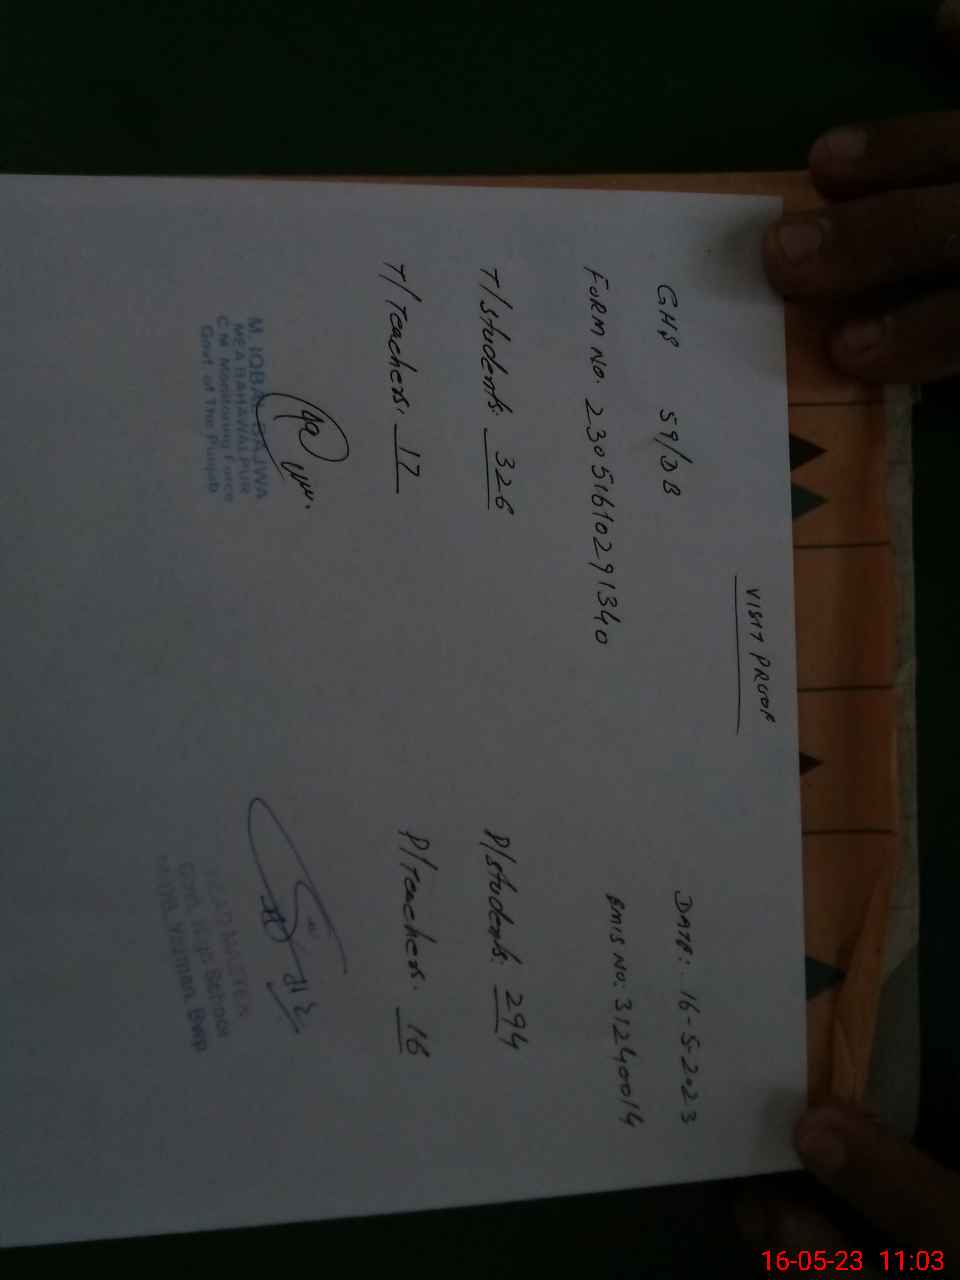 VISIT PROOF
GHS 59/DB DATE: 16-5-2023
FORM NO. 23051610291340 EMIS NO: 31240014
T/Students. 326 P/Students. 294
T/Teachers. 17 P/Teachers. 16
M. IQBAL BAJWA
MEA BAHAWALPUR
CM Monitoring Force
Govt of The Punjab
HEAD MASTER
Govt. High School
Yazman, Bwp
16-05-23 11:03